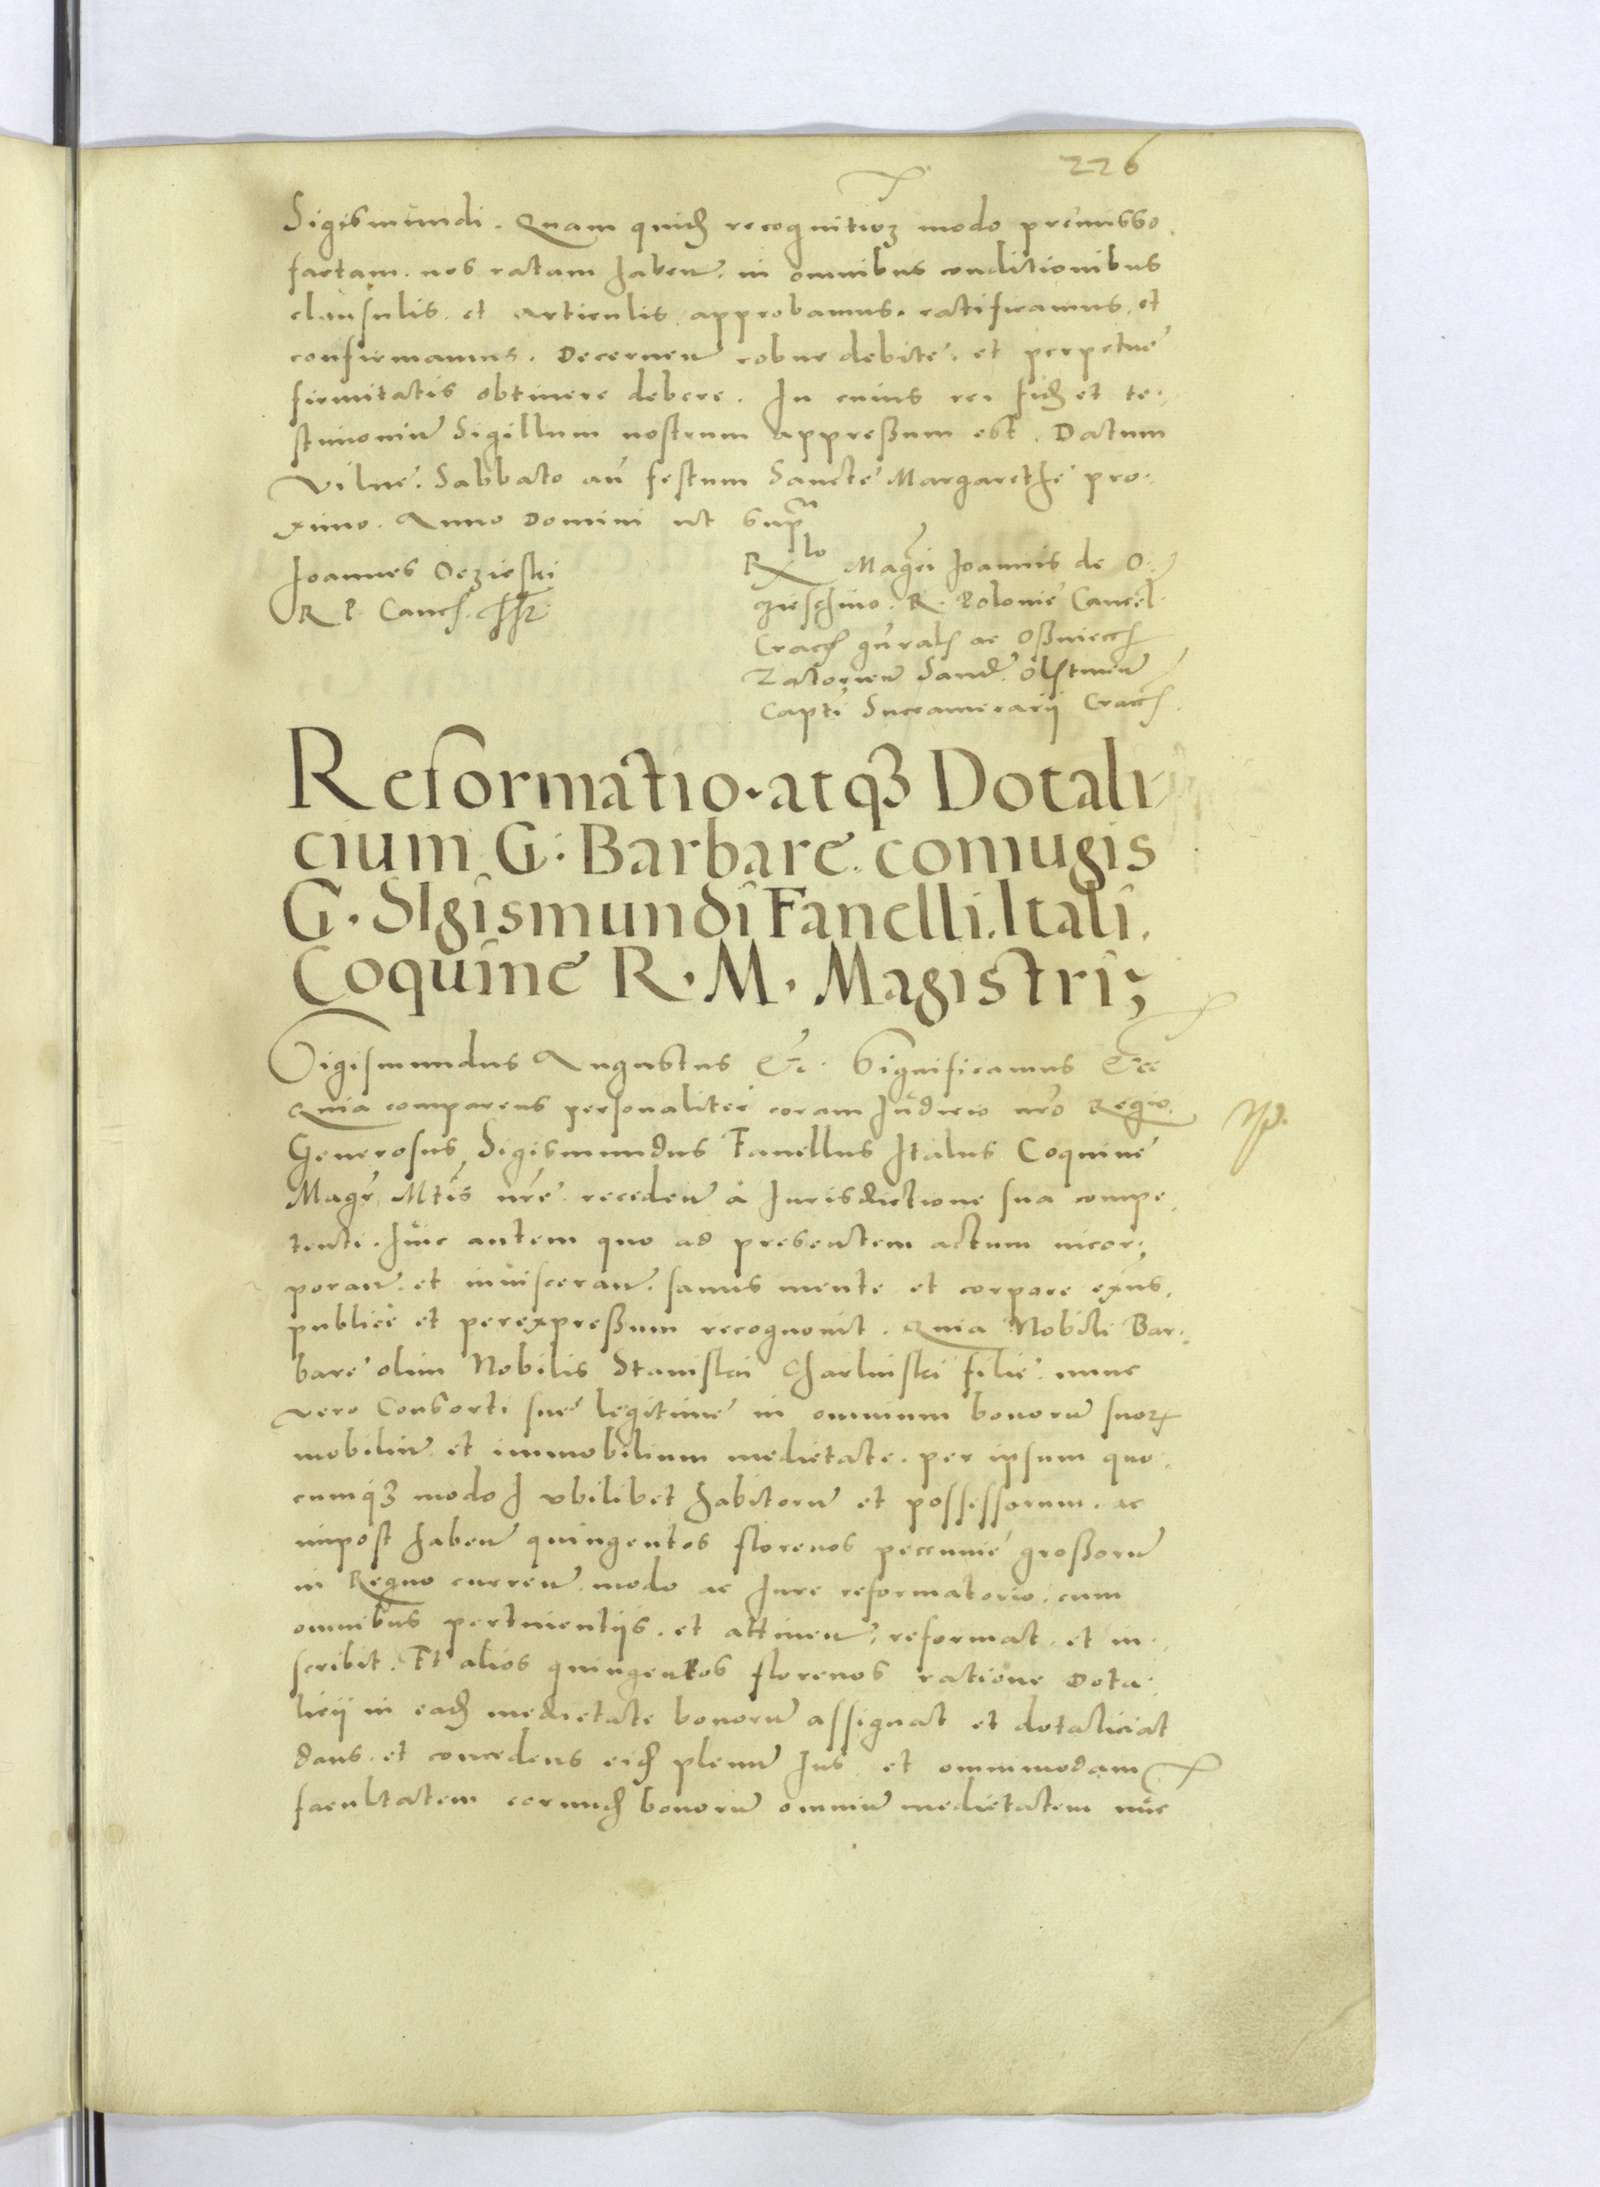 226
Sigismundi. Quam quidẽ recognitioẽ modo premisso
factam. nos ratam habeñ. in omnibus conditionibus
clausulis. et articulis. approbamus. ratificamus. et
confirmamus. Decerneñ robur debite. et perpetue
firmitatis obtinere debere. In cuius rei fidẽ et te-
stimoniũ Sigillum nostrum appressum est. Datum
Vilne. Sabbato añ festum Sancte Margarethe pro-
ximo. Anno Domini ut supra
Joannes Oczieski
R P. Canc.
Rlo Magci Joannis de O-
czieschino. R. Polonie Cancel
Crac gñral ac Osswiecẽ
Zatorieñ Sand. Olstineñ
Capti Succamerarij Crac.
Reformatio. atqȝ Dotali-
cium G: Barbare. coniugis
G. Sigismundi Fanelli. Itali.
Coquine R. M. Magistri;
Sigismundus Augustus &c. Significamus &c
Quia comparens personaliter coram Judicio nro Regio.
Generosus Sigismundus Fanellus Italus Coquine
Magr̃ Mtis nr̃e. recedeñ à Jurisdictione sua compe-
tenti. huic autem quo ad presentem actum incor-
porañ. et inviscerañ. sanus mente et corpore exñs.
publice et per expressum recognovit. Quia Nobili Bar-
bare olim Nobilis Stanislai Charlinski filie. nunc
vero Consorti sue legitime in omnium bonorũ suorꝝ
mobiliũ et immobilium medietate. per ipsum quo-
cumqȝ modo ubilibet habitorũ et possessorum. ac
inpost habeñ quingentos florenos peccunie grossorũ
in Regno curreñ. modo ac Jure reformatorio. cum
omnibus pertinentijs. et attineñ. reformat. et in-
scribit. Et alios quingentos florenos ratione Dota-
licij in eadẽ medietate bonorũ assignat et dotaliciat
dans. et concedens eidẽ plenũ Jus. et omnimodam
facultatem eorundẽ bonorũ omniũ medietatem nũc